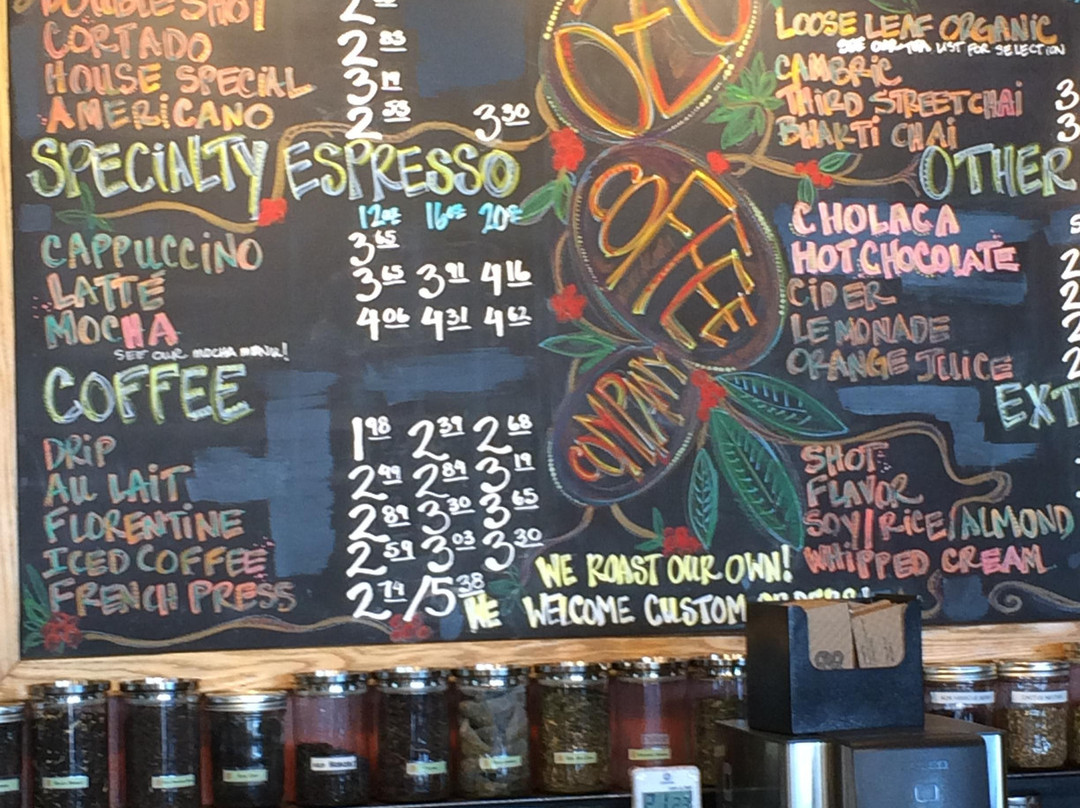 DOUBLE SHOT 2
CORTADO 2 85
HOUSE SPECIAL 3 19
AMERICANO 2 55 3 30
SPECIALTY ESPRESSO
12oz 16oz 20oz
CAPPUCCINO 3 65
LATTÉ 3 65 3 91 4 16
MOCHA 4 06 4 31 4 62
SEE OUR MOCHA MENU!
COFFEE
DRIP 1 98 2 39 2 68
AU LAIT 2 49 2 89 3 19
FLORENTINE 2 89 3 30 3 65
ICED COFFEE 2 59 3 03 3 30
FRENCH PRESS 2 74 / 5 38
OZO
COFFEE
COMPANY
WE ROAST OUR OWN!
WE WELCOME CUSTOM
LOOSE LEAF ORGANIC
SEE OUR TEA LIST FOR SELECTION
CAMBRIC
THIRD STREET CHAI 3
BHAKTI CHAI 3
OTHER
CHOLACA
HOT CHOCOLATE 2
CIDER 2
LEMONADE 2
ORANGE JUICE 2
EXT
SHOT
FLAVOR
SOY/RICE/ALMOND
WHIPPED CREAM